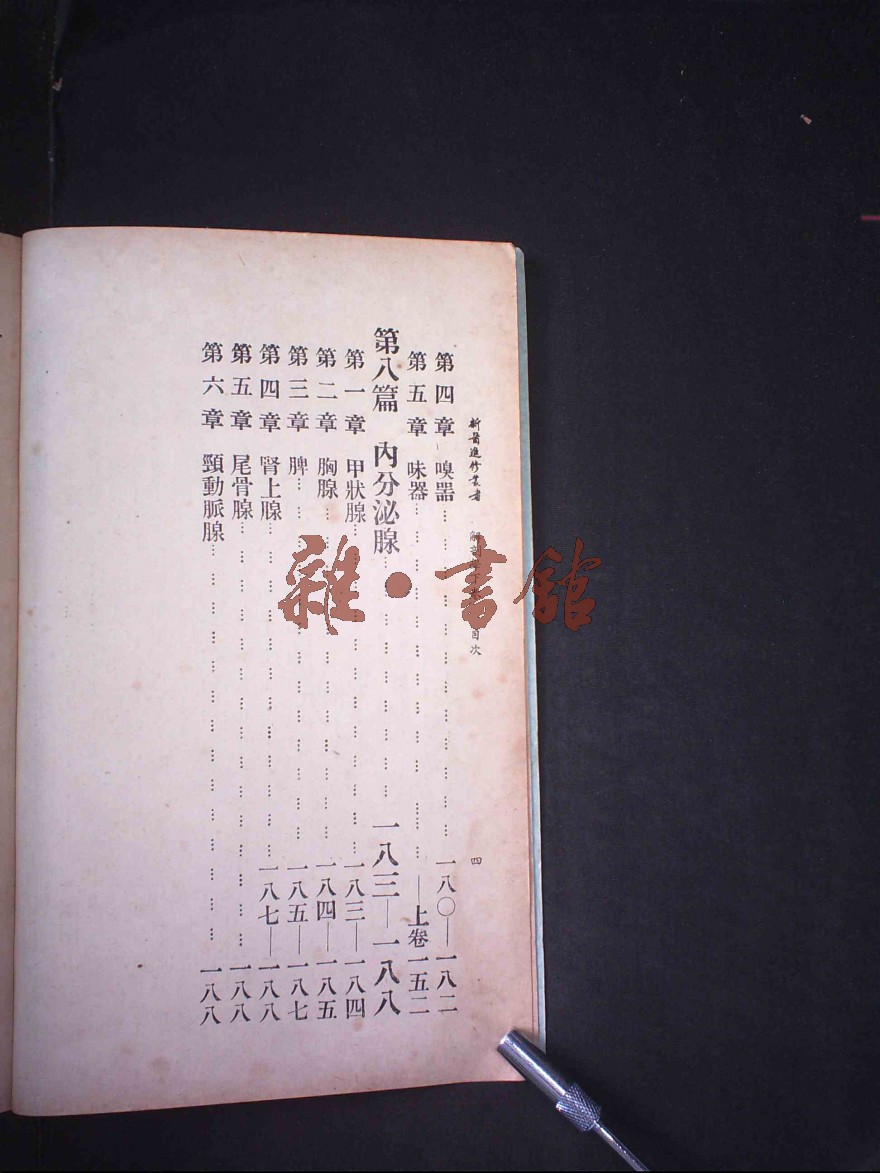 新醫進修叢書 解剖 目次 四
第四章 嗅器……一八〇—一八二
第五章 味器……—上卷一五二
第八篇 內分泌腺……一八三—一八八
第一章 甲狀腺……一八三—一八四
第二章 胸腺……一八四—一八五
第三章 脾……一八五—一八七
第四章 腎上腺……一八七—一八八
第五章 尾骨腺……一八八
第六章 頸動脈腺……一八八
雜·書館